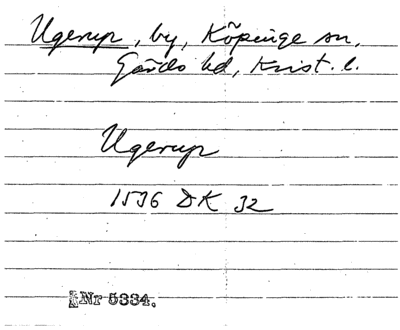 Ugerup, by, Köpinge sn,
Gärds hd, Krist. l.
Ugerup
1536 DK 32
Nr 5334.